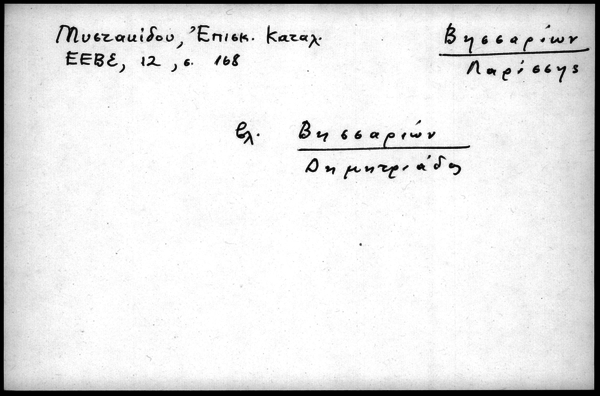 Μυστακίδου, Ἐπισκ. Καταλ.
ΕΕΒΣ, 12, σ. 168
Βησσαρίων
Λαρίσσης
βλ. Βησσαριών
Δημητριάδος